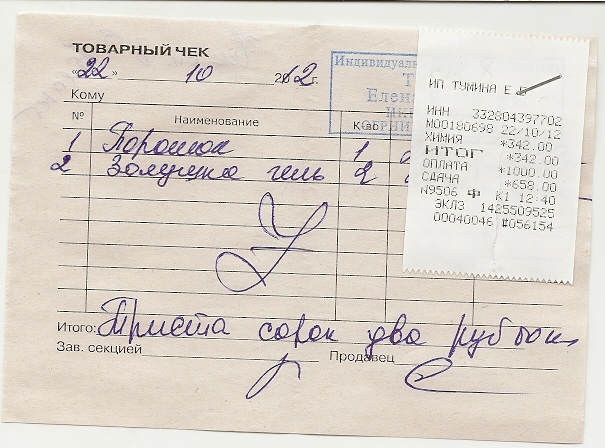 ТОВАРНЫЙ ЧЕК
«22» 10 2012г.
Кому
Индивидуаль
Т
Елена
ИНН
ОГРНИ
№ Наименование К-во
1 Порошок 1
2 Золушка гель 2
Итого: Триста сорок два рубля
Зав. секцией Продавец
ИП ТУМИНА Е.Б
ИНН 332804397702
М00180698 22/10/12
ХИМИЯ *342.00
ИТОГ *342.00
ОПЛАТА *1000.00
СДАЧА *658.00
N9506 Ф К1 12:40
ЭКЛЗ 1425509525
00040046 #056154